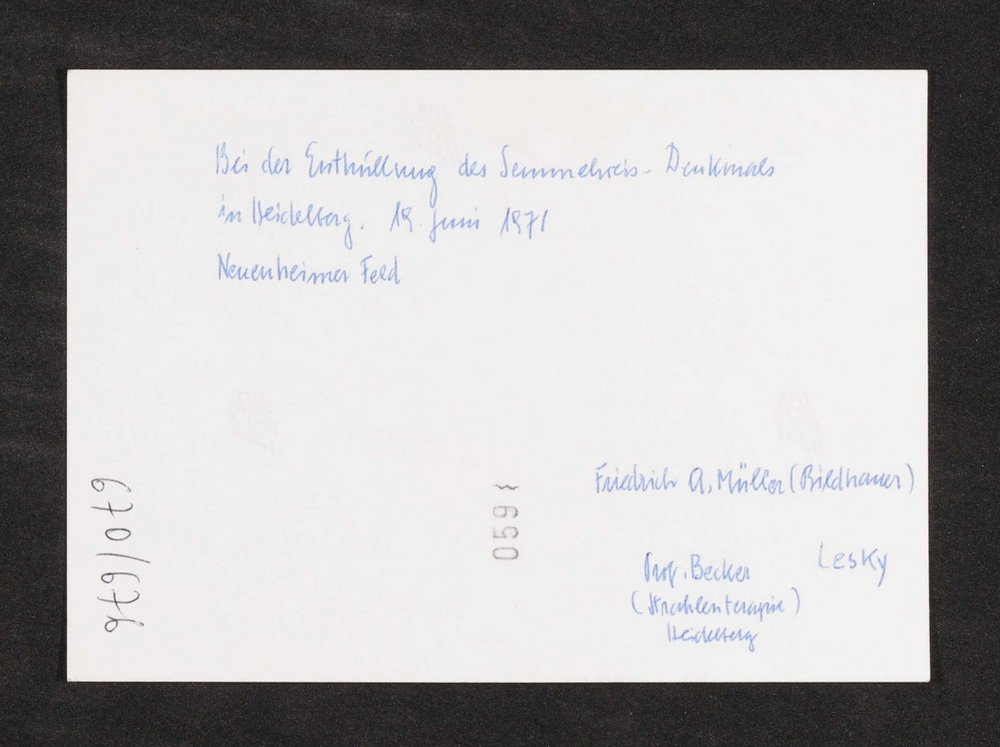 Bei der Enthüllung des Semmelweis-Denkmals
in Heidelberg. 19. Juni 1971
Neuenheimer Feld
Friedrich A. Müller (Bildhauer)
Prof. Becker
Lesky
(Strahlenterapie)
Heidelberg
059